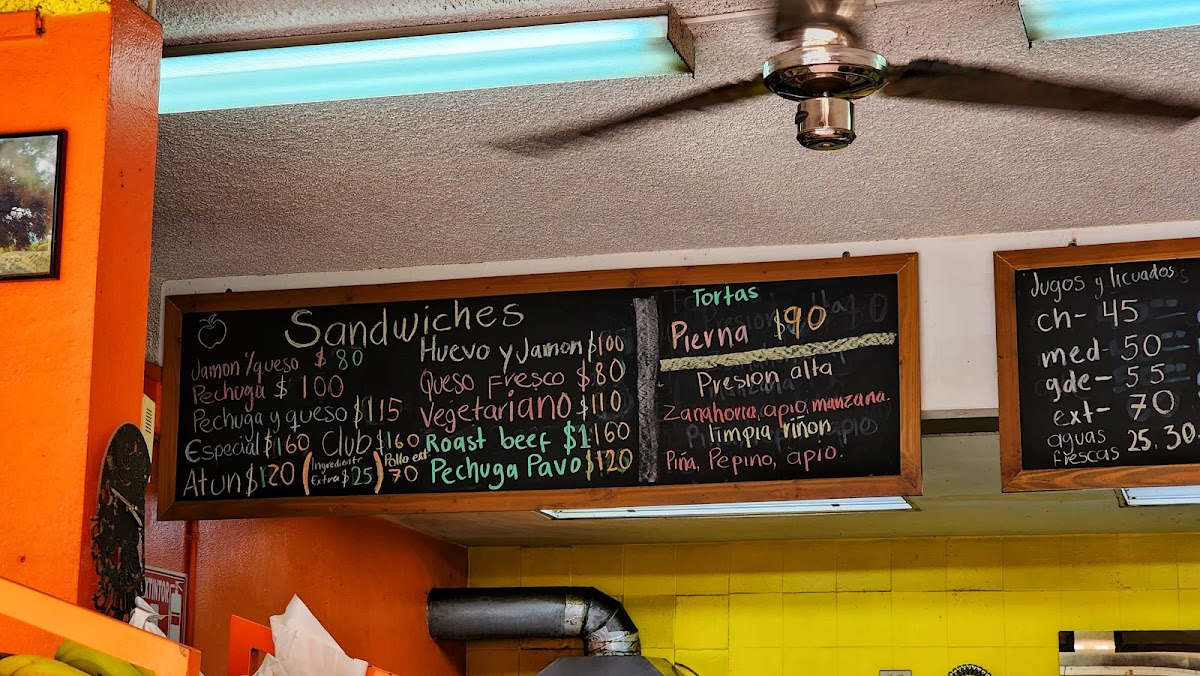 Sandwiches
Jamon y/queso $80
Pechuga $100
Pechuga y queso $115
Especial $160 Club $160
Atun $120 (Ingrediente Extra $25) Pollo ext 70
Huevo y Jamon $100
Queso Fresco $80
Vegetariano $110
Roast beef $160
Pechuga Pavo $120
Tortas
Pierna $90
Presion alta
Zanahoria, apio, manzana.
limpia riñon
Piña, Pepino, apio.
Jugos y licuados
ch- 45
med- 50
gde- 55
ext- 70
aguas frescas 25.30